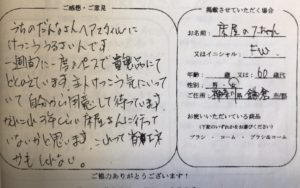 ご感想・ご意見
うちのだんなさんヘアスタイルに
けっこううるさいんです
一週間に一度のペースで
とどのえています。主人けっこう気にいって
いて自分から用意して行っています。
かれこれ3年ぐらい床屋さんに行って
いないかと思います。これって
かもしれない。
ご協力ありがとうございます!
掲載させていただく場合
お名前: 床屋の
又はイニシャル: FW
年齢: 歳 又は 60 歳代
性別: 男・女
ご住所: 神奈川県 鎌倉 市
お使いいただいている商品
(下記のいずれかをお選びください)
ブラシ ・ コーム ・ ブラシ&コーム